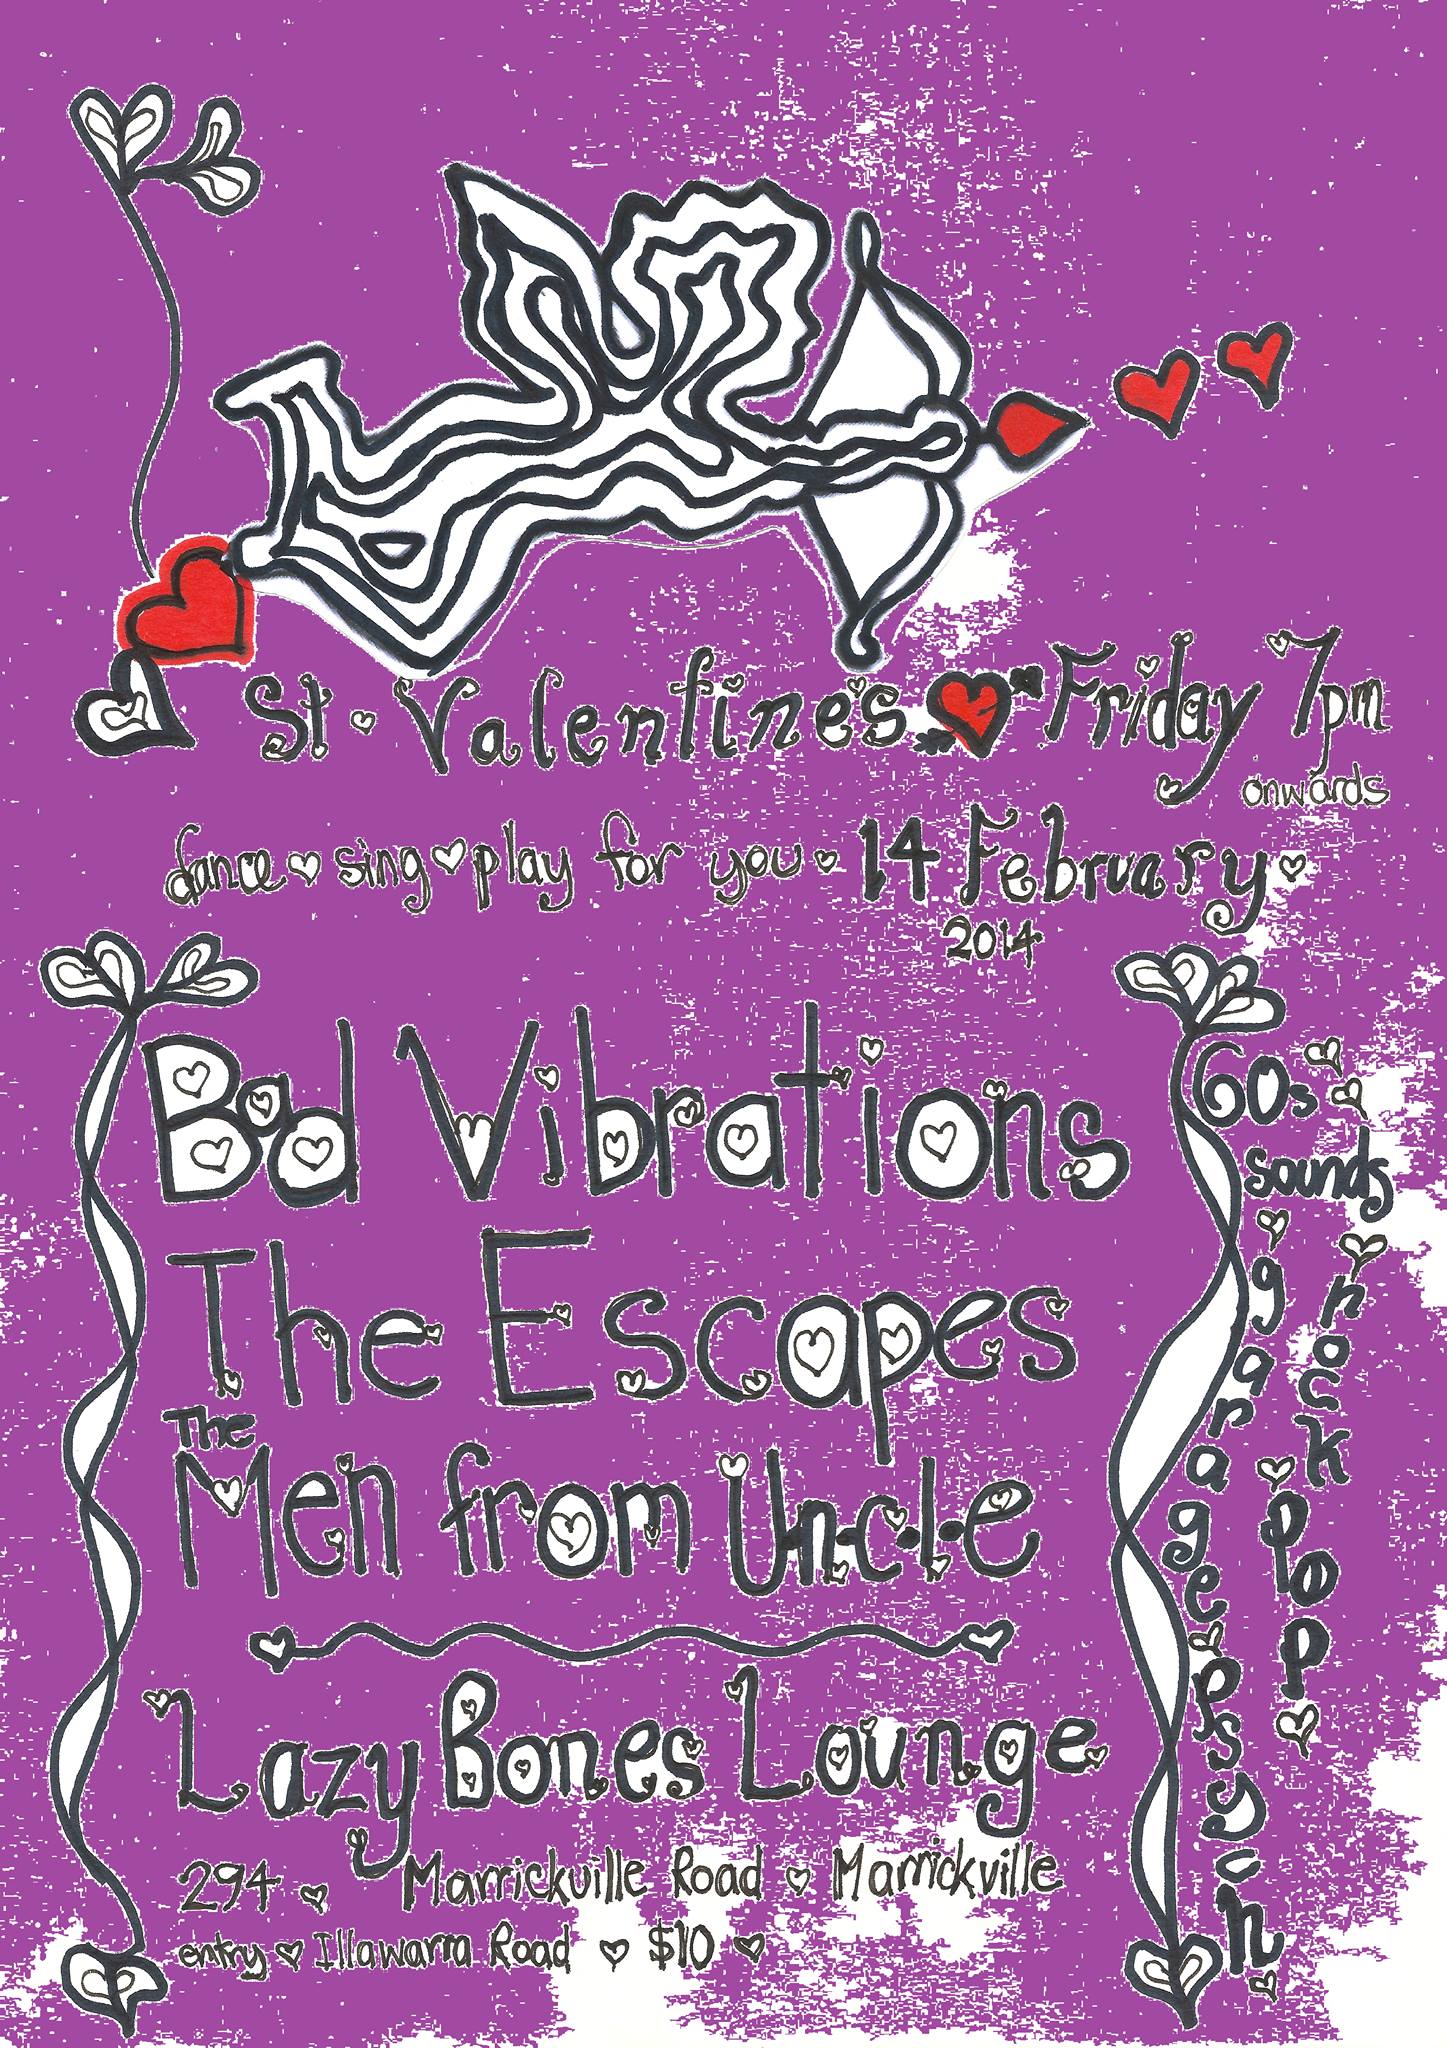 St. Valentine's Friday 7pm
onwards
dance sing play for you 14 February
2014
Bad Vibrations
The Escapes
The
Men from U.n.c.l.e
Lazy Bones Lounge
294 Marrickville Road Marrickville
entry Illawarra Road $10
60s
sounds
garage
psych
rock
pop